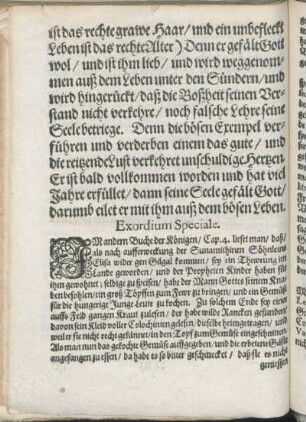 ist das rechte grawe Haar/ und ein unbefleckt
Leben ist das rechte Alter) Denn er gefält Gott
wol / und ist ihm lieb / und wird weggenom-
men auß dem Leben unter den Sündern/ und
wird hingerückt/ daß die Boßheit seinen Ver-
stand nicht verkehre/ noch falsche Lehre seine
Seele betriege. Denn die bösen Exempel ver-
führen und verderben einem das gute / und
die reitzende Lust verkehret unschuldige Hertzen.
Er ist bald vollkommen worden und hat viel
Jahre erfüllet/ dann seine Seele gefält Gott/
darumb eilet er mit ihm auß dem bösen Leben.
Exordium Speciale.
IM andern Buche der Königen/ Cap. 4. lieset man/ daß/
als nach aufferweckung der Sunamithsinen Söhnleins
Elisa wider gen Gilgal kommen/ sey ein Thewrung im
Lande geworden/ und der Propheten Kinder haben für
ihm gewohnet; selbige zu speisen/ habe der Mann Gottes seinem Kna-
ben befohlen/ ein groß Töpffen zum Fewr zu bringen/ und ein Gemüß
für die hungerige Junge Leute zu kochen. Zu solchem Ende sey einer
auffs Feld gangen Kraut zulesen/ der habe wilde Rancken gefunden/
davon sein Kleid voller Colochinten gelesen/ dieselbe heimgetragen/ und
weiler sie nicht recht gekännt/ in den Topf zum Gemüse eingeschnitten.
Als man nun das gekochte Gemüse auffgegeben/ und die erbetene Gäste
angefangen zu essen/ da habe es so bitter geschmecket / daß sie es nicht
geniessen